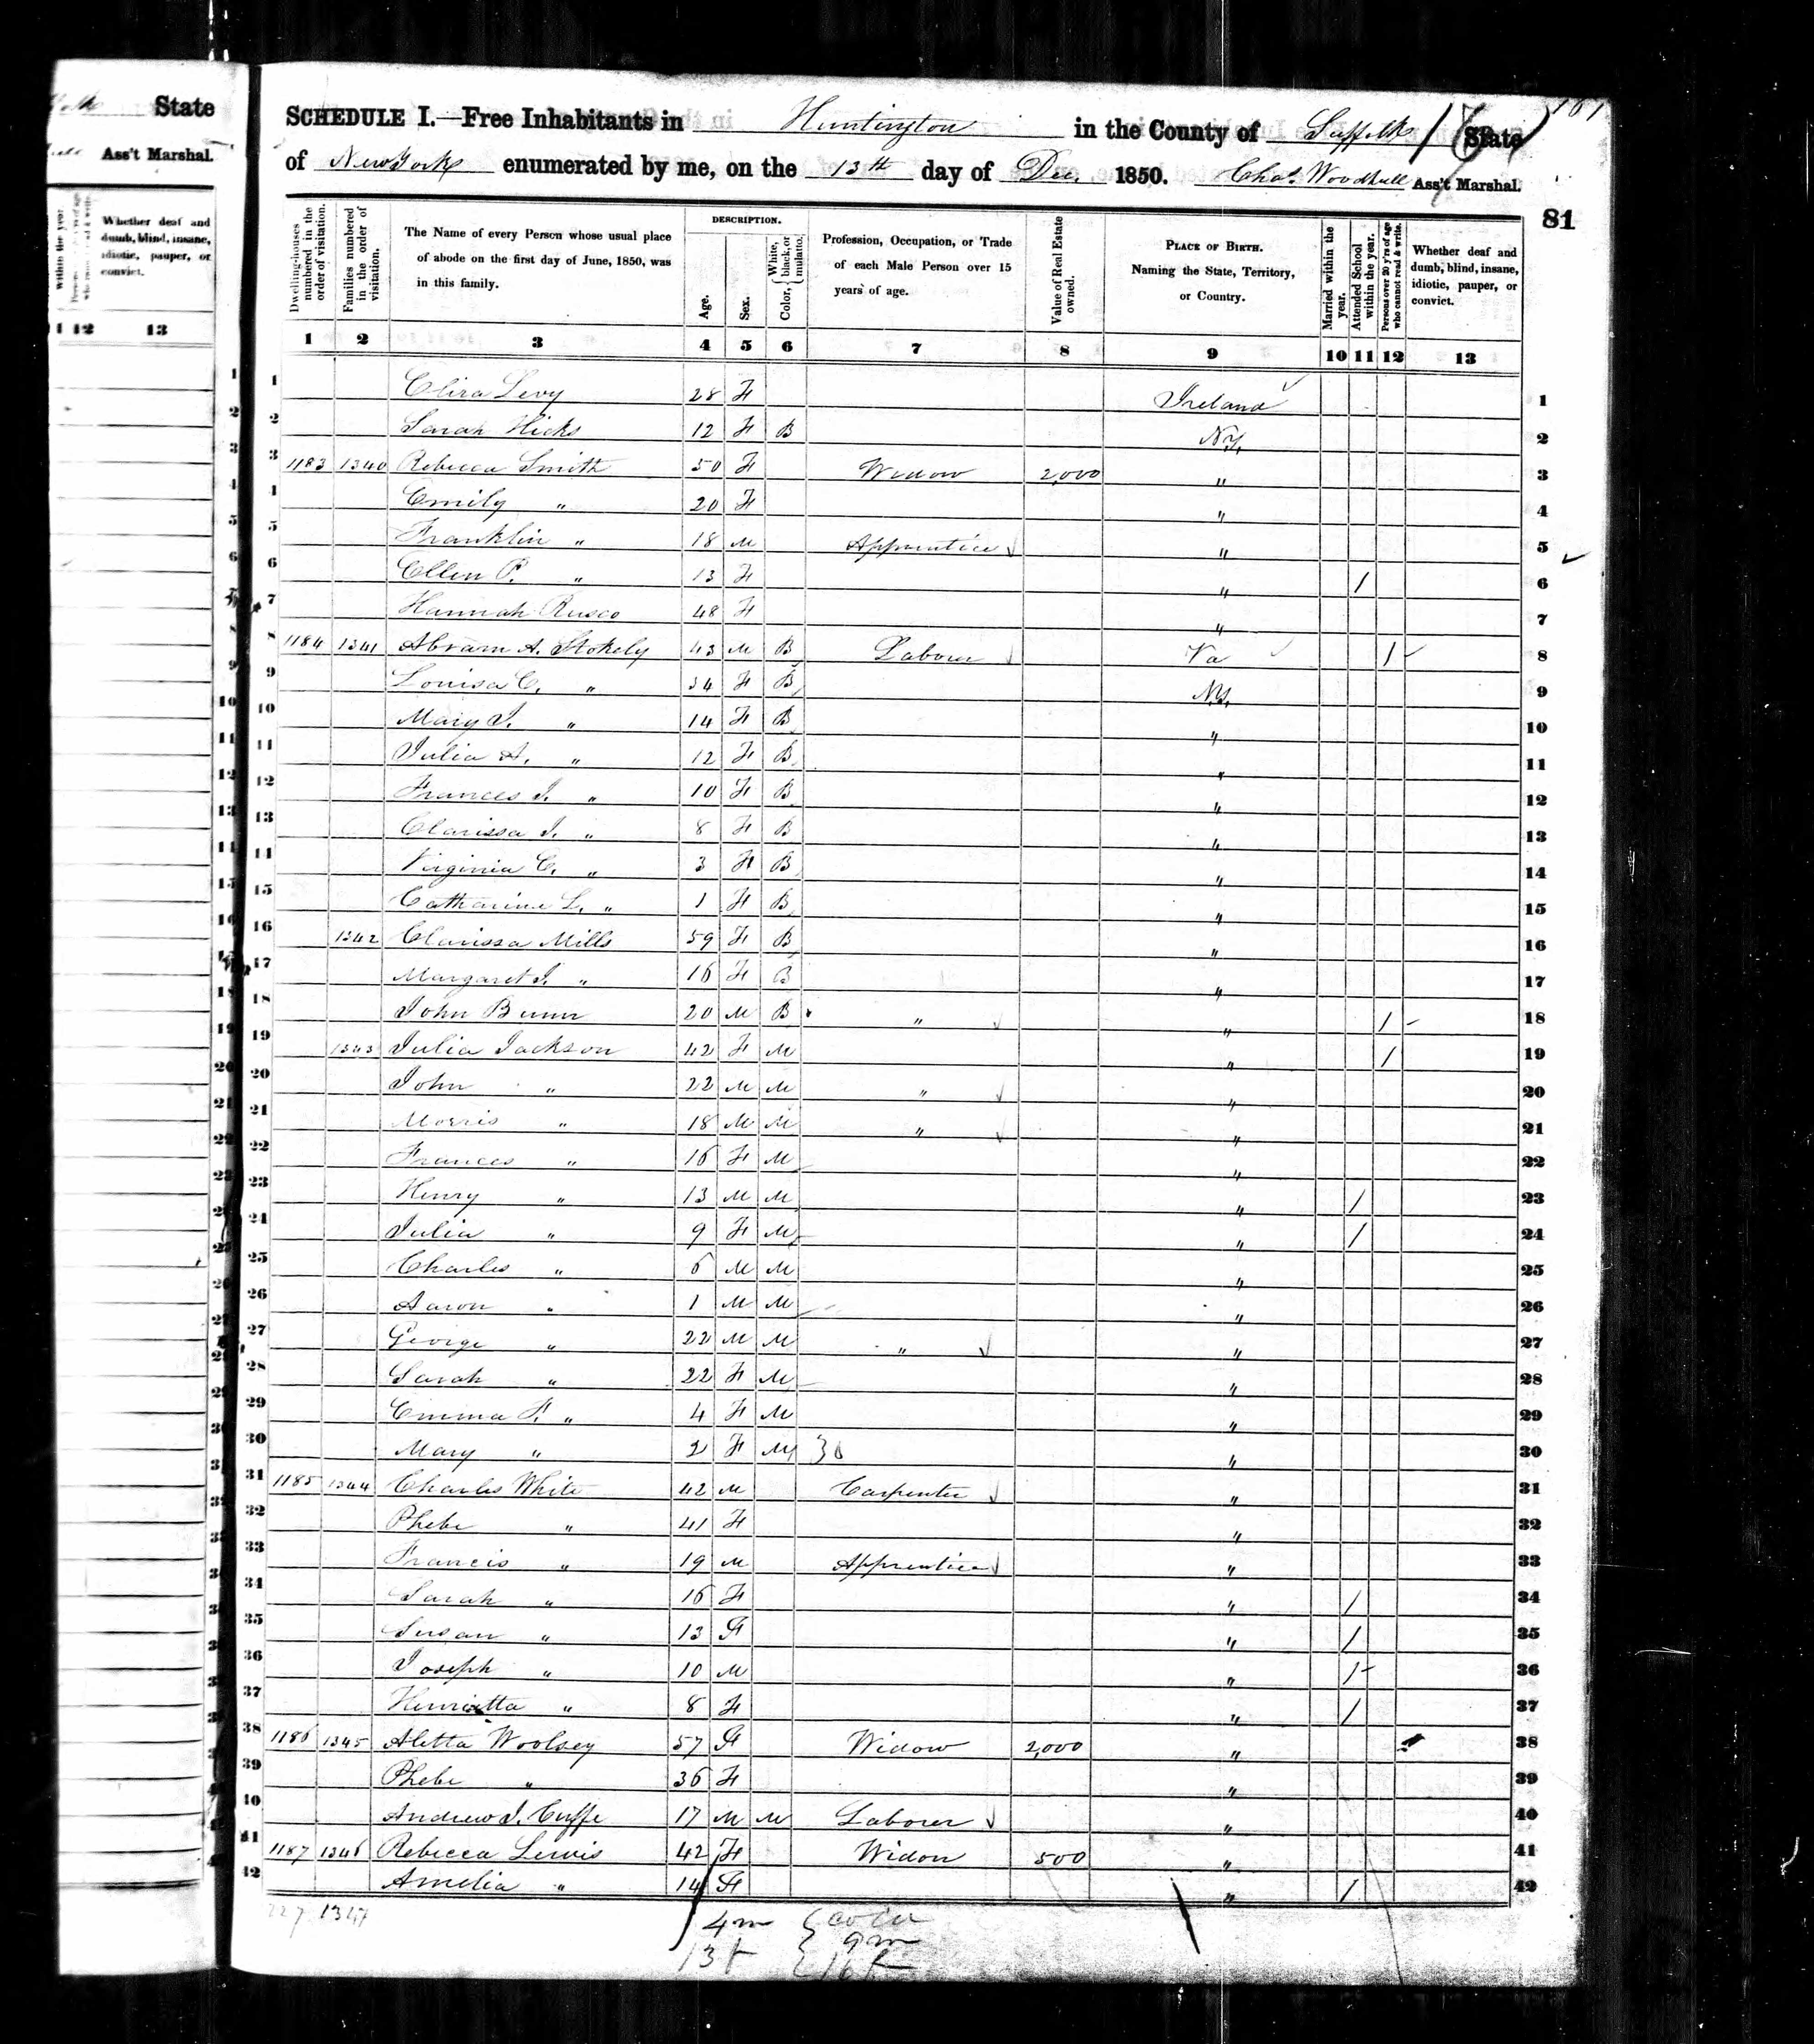 State
Ass't Marshal.
Whether deaf and
dumb, blind, insane,
idiotic, pauper, or
convict.
12 13
SCHEDULE I.—Free Inhabitants in Huntington in the County of Suffolk State
of New York enumerated by me, on the 13th day of Dec. 1850. Chas. Woodhull Ass't Marshal.
81
Dwelling-houses numbered in the order of visitation.
Families numbered in the order of visitation.
The Name of every Person whose usual place of abode on the first day of June, 1850, was in this family.
DESCRIPTION.
Age.
Sex.
Color, White, black, or mulatto.
Profession, Occupation, or Trade of each Male Person over 15 years of age.
Value of Real Estate owned.
PLACE OF BIRTH. Naming the State, Territory, or Country.
Married within the year.
Attended School within the year.
Persons over 20 y'rs of age who cannot read & write.
Whether deaf and dumb, blind, insane, idiotic, pauper, or convict.
1 2 3 4 5 6 7 8 9 10 11 12 13
1 Eliza Levy 28 F Ireland 1
2 Sarah Hicks 12 F B N.Y. 2
3 1183 1340 Rebecca Smith 50 F Widow 2,000 " 3
4 Emily " 20 F " 4
5 Franklin " 18 M Apprentice " 5
6 Ellen P. " 13 F " / 6
7 Hannah Rusco 48 F " 7
8 1184 1341 Abram A. Stokely 43 M B Labour Va / 8
9 Louisa C. " 34 F B N.Y. 9
10 Mary J. " 14 F B " 10
11 Julia A. " 12 F B " 11
12 Frances J. " 10 F B " 12
13 Clarissa J. " 8 F B " 13
14 Virginia C. " 3 F B " 14
15 Catharine L. " 1 F B " 15
16 1342 Clarissa Mills 59 F B " 16
17 Margaret J. " 16 F B " 17
18 John Bunn 20 M B " " / 18
19 1343 Julia Jackson 42 F M " / 19
20 John " 22 M M " " 20
21 Morris " 18 M M " " 21
22 Frances " 16 F M " 22
23 Henry " 13 M M " / 23
24 Julia " 9 F M " / 24
25 Charles " 6 M M " 25
26 Aaron " 1 M M " 26
27 George " 22 M M " " 27
28 Sarah " 22 F M " 28
29 Emma F. " 4 F M " 29
30 Mary " 2 F M " 30
31 1185 1344 Charles White 42 M Carpenter " 31
32 Phebe " 41 F " 32
33 Francis " 19 M Apprentice " 33
34 Sarah " 16 F " / 34
35 Susan " 13 F " / 35
36 Joseph " 10 M " / 36
37 Henrietta " 8 F " / 37
38 1186 1345 Aletta Woolsey 57 F Widow 2,000 " 38
39 Phebe " 36 F " 39
40 Andrew J. Cuffe 17 M M Laborer " 40
41 1187 1346 Rebecca Lewis 42 F Widow 500 " 41
42 Amelia " 14 F " / 42
1347
4 m
9 m
13 f
16 f